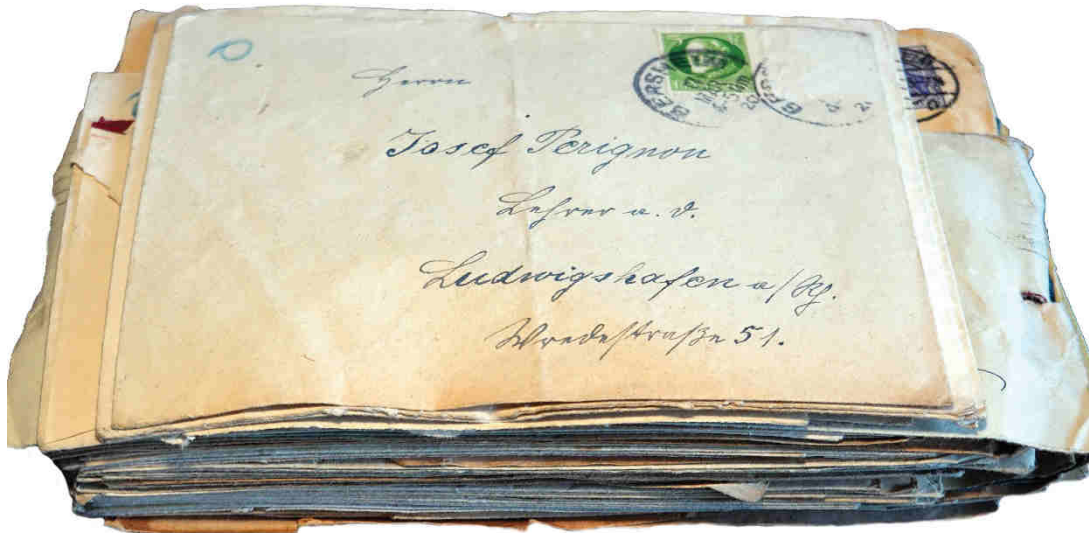 Herrn
Josef Perignon
Lehrer a. D.
Ludwigshafen a/Rh.
Wredestraße 51.